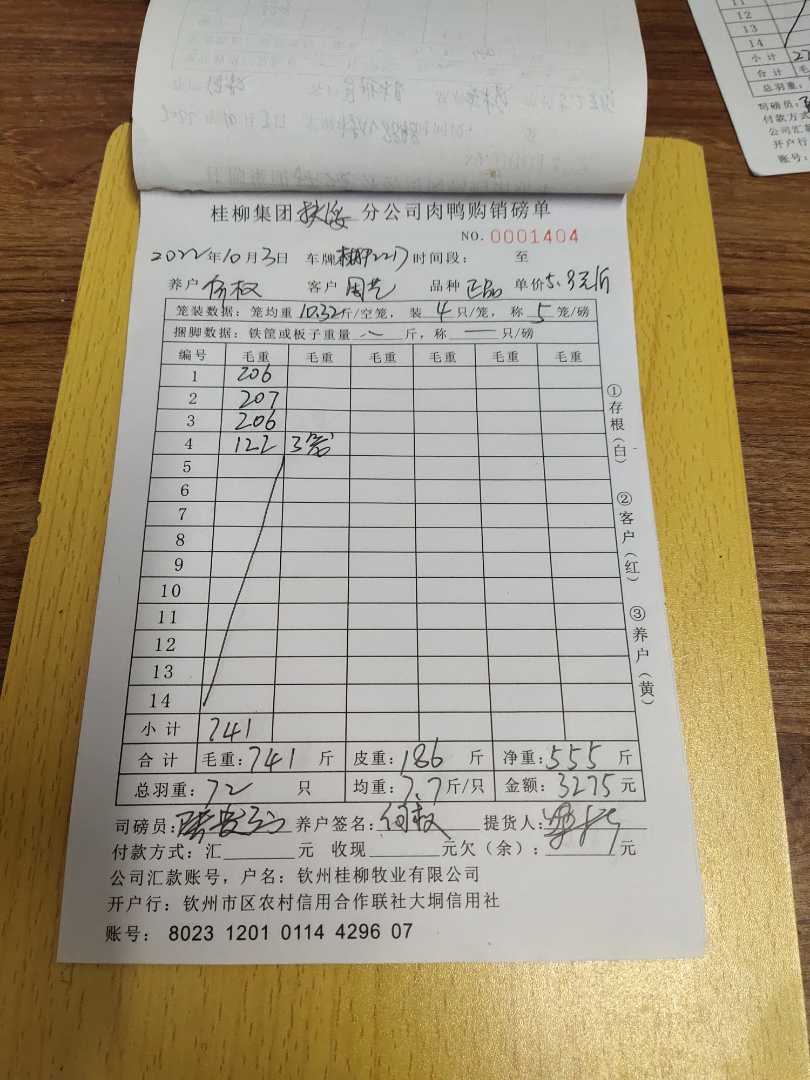 桂柳集团扶绥分公司肉鸭购销磅单
NO. 0001404
2022年10月3日 车牌 2217 时间段： 至
养户 何权 客户 周艺 品种 正品 单价5.9元/斤
笼装数据：笼均重 10.32斤/空笼，装 4 只/笼，称 5 笼/磅
捆脚数据：铁筐或板子重量 斤，称 一 只/磅
编号 毛重 毛重 毛重 毛重 毛重 毛重
1 206
2 207
3 206
4 122 3笼
5
6
7
8
9
10
11
12
13
14
小计 741
合计 毛重：741 斤 皮重：186 斤 净重：555 斤
总羽重：72 只 均重：7.7斤/只 金额：3275元
司磅员： 养户签名：何权 提货人：
付款方式：汇 元 收现 元欠（余）： 元
公司汇款账号，户名：钦州桂柳牧业有限公司
开户行：钦州市区农村信用合作联社大垌信用社
账号： 8023 1201 0114 4296 07
①存根（白）
②客户（红）
③养户（黄）
11
12
13
14
小计 27
合计 毛
总羽重：
司磅员：
付款方式
公司汇
开户行
账号：